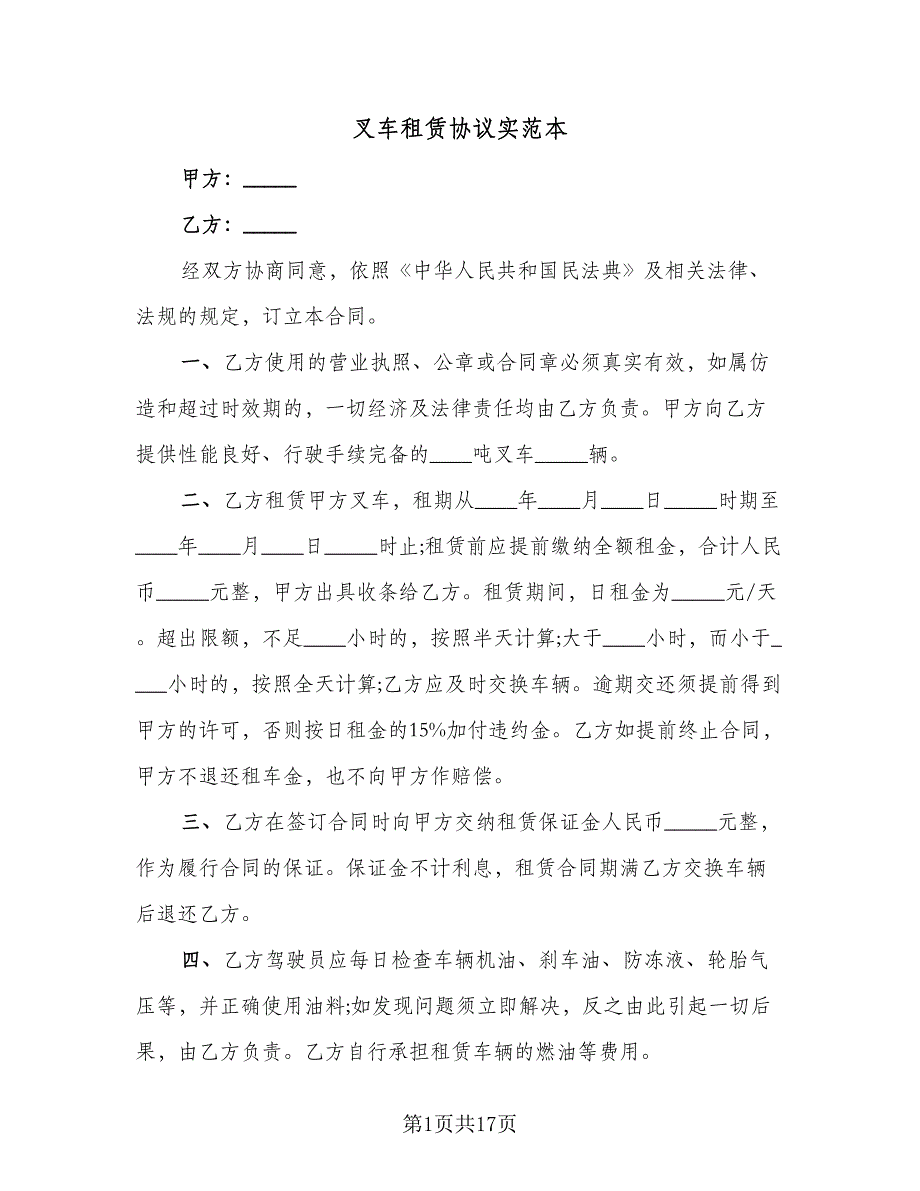 叉车租赁协议实范本
甲方：_____
乙方：_____
经双方协商同意，依照《中华人民共和国民法典》及相关法律、
法规的规定，订立本合同。
一、乙方使用的营业执照、公章或合同章必须真实有效，如属仿
造和超过时效期的，一切经济及法律责任均由乙方负责。甲方向乙方
提供性能良好、行驶手续完备的____吨叉车_____辆。
二、乙方租赁甲方叉车，租期从____年____月____日_____时期至
____年____月____日_____时止;租赁前应提前缴纳全额租金，合计人民
币_____元整，甲方出具收条给乙方。租赁期间，日租金为_____元/天
。超出限额，不足____小时的，按照半天计算;大于____小时，而小于_
___小时的，按照全天计算;乙方应及时交换车辆。逾期交还须提前得到
甲方的许可，否则按日租金的15%加付违约金。乙方如提前终止合同，
甲方不退还租车金，也不向甲方作赔偿。
三、乙方在签订合同时向甲方交纳租赁保证金人民币_____元整，
作为履行合同的保证。保证金不计利息，租赁合同期满乙方交换车辆
后退还乙方。
四、乙方驾驶员应每日检查车辆机油、刹车油、防冻液、轮胎气
压等，并正确使用油料;如发现问题须立即解决，反之由此引起一切后
果，由乙方负责。乙方自行承担租赁车辆的燃油等费用。
第1页共17页